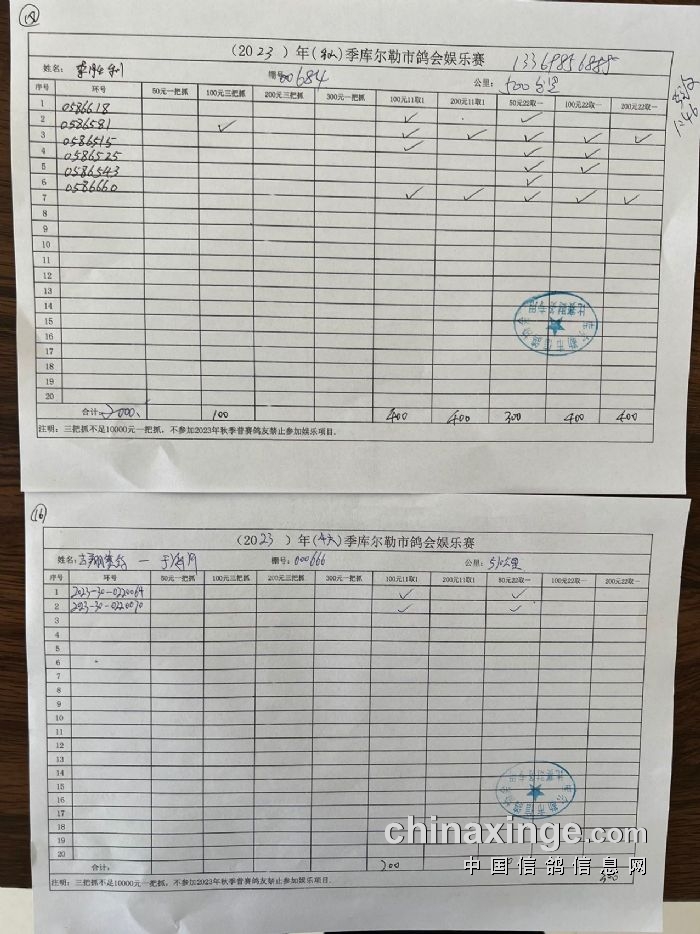 18
(2023)年(秋)季库尔勒市鸽会娱乐赛 13369856885
姓名: 棚号:00684 公里:500公里
序号 环号 50元一把抓 100元三把抓 200元三把抓 300元一把抓 100元11取1 200元11取1 50元22取一 100元22取一 200元22取一
1 0586618
2 0586581 ✓ ✓
3 0586515 ✓ ✓ ✓ ✓ ✓ ✓
4 0586525 ✓ ✓ ✓
5 0586543 ✓ ✓
6 0586660 ✓
7 ✓ ✓ ✓ ✓ ✓
8
9
10
11
12
13
14
15
16
17
18
19
20
合计: 2000 100 400 400 300 400 400
注明:三把抓不足10000元一把抓,不参加2023年秋季普赛鸽友禁止参加娱乐项目.
1246
16
(2023)年(秋)季库尔勒市鸽会娱乐赛
姓名: 棚号:000666 公里:510公里
序号 环号 50元一把抓 100元三把抓 200元三把抓 300元一把抓 100元11取1 200元11取1 50元22取一 100元22取一 200元22取一
1 2023-30-0220064 ✓ ✓
2 2023-30-0220070 ✓ ✓
3
4
5
6
7
8
9
10
11
12
13
14
15
16
17
18
19
20
合计: 200 300
注明:三把抓不足10000元一把抓,不参加2023年秋季普赛鸽友禁止参加娱乐项目.
chinaxinge.com
中国信鸽信息网